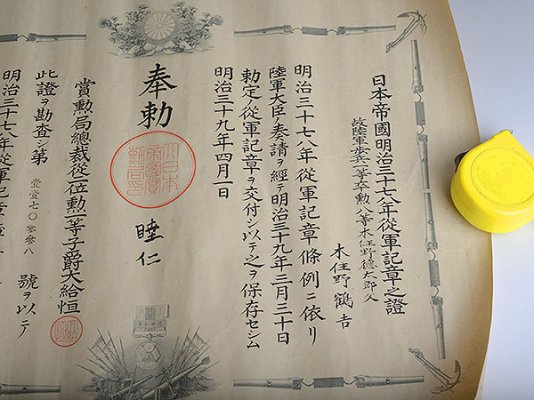 日本帝國明治三十七八年從軍記章之證
故陸軍歩兵一等卒勲八等木住野德太郎父
木住野鶴吉
明治三十七八年從軍記章條例ニ依リ
陸軍大臣ノ奏請ヲ經テ明治三十九年三月三十日
勅定ノ從軍記章ヲ交付シ以テ之ヲ保存セシム
明治三十九年四月一日
奉勅
大日本帝國賞勲局印
睦仁
賞勲局總裁從二位勲一等子爵大給恒
此證ヲ勘査シ第壹壹七〇零零八號ヲ以テ
明治三十七八年從軍記章